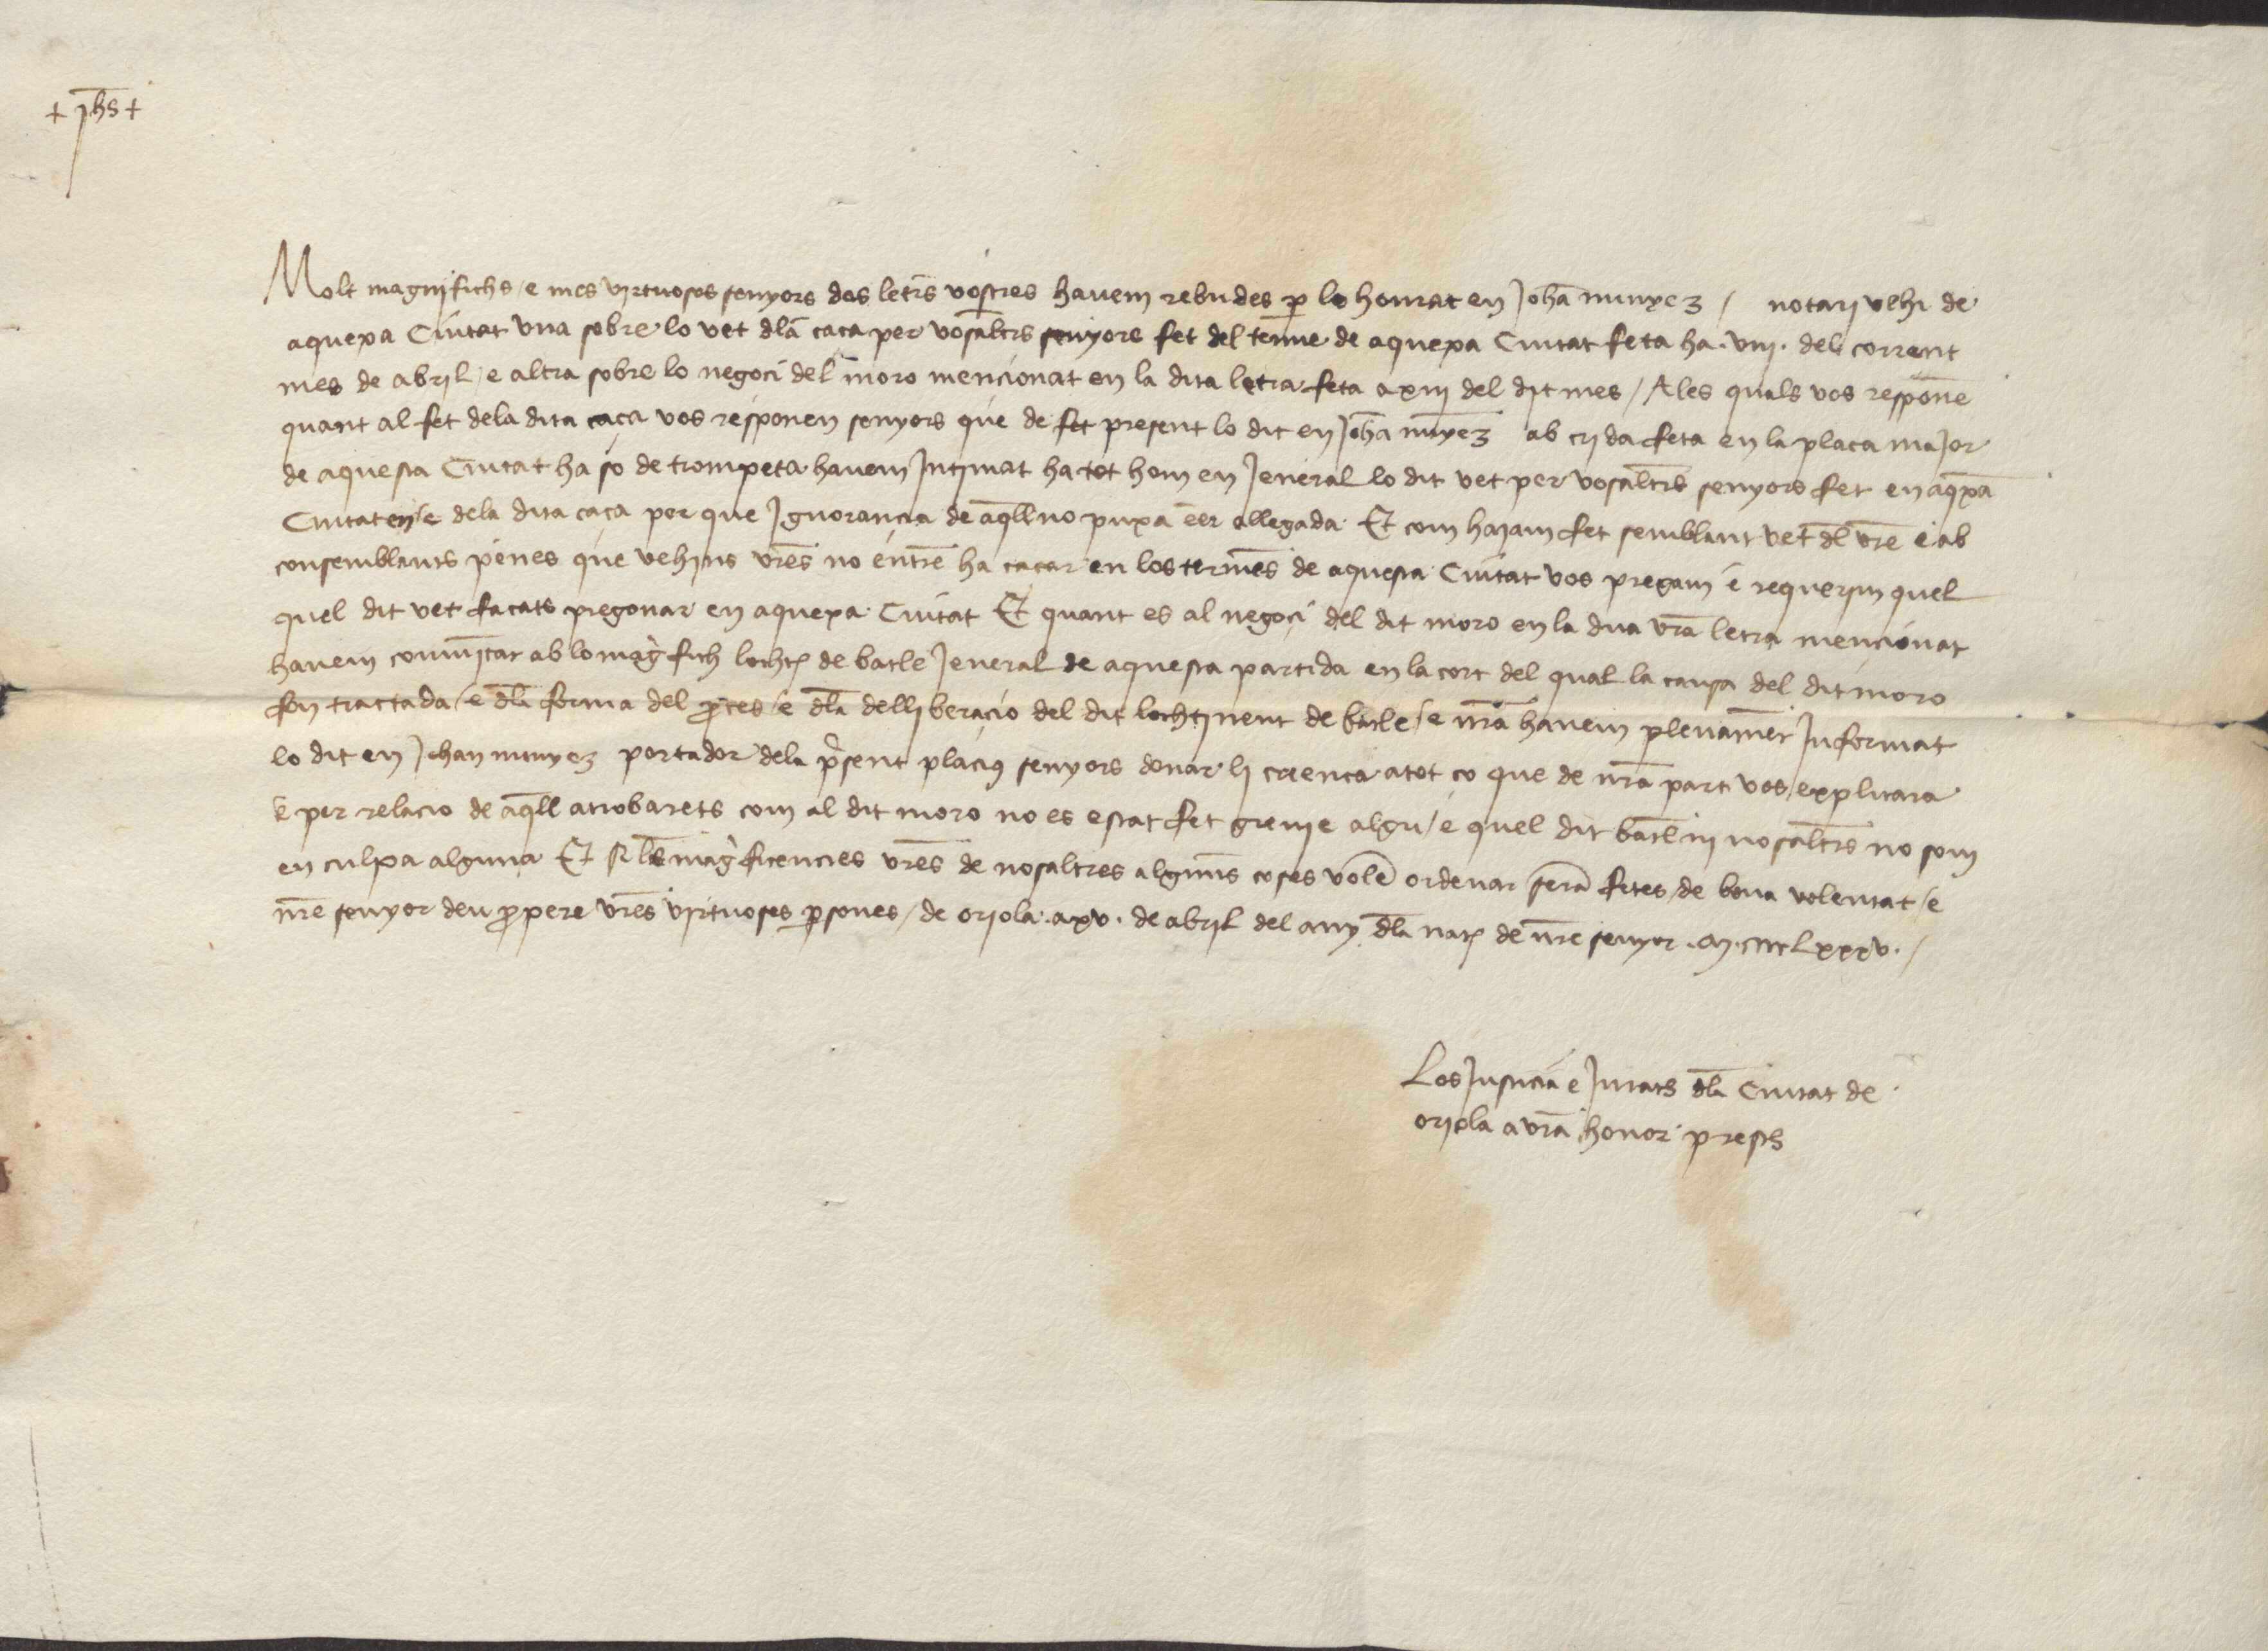 + Jhs +
Molt magnifichs / e mes virtuosos senyors dos letrs vostres hauem rebudes p lo honrat en Johā munyez / notari vehi de
aquexa Ciutat vna sobre lo vet dla caca per vosaltrs senyors fet del terme de aquexa Ciutat feta ha . viij . del corrent
mes de abril / e altra sobre lo negoci del moro mencionat en la dita letra feta a xiij del dit mes / A les quals vos responē
quant al fet dela dita caca vos responen senyors que de fet present lo dit en Johā munyez ab crida feta en la placa maJor
de aquesta Ciutat ha so de trompeta hauem Jntimat ha tot hom en Jeneral lo dit vet per vosaltrs senyors fet en aqxa
Ciutat en / e dela dita caca per que Jgnorancia de aqll no puxa eer allegada Et com haiam fet semblant vet dl vre e ab
consemblants penes que vehins vres no entrē ha cacar en los termes de aquesta Ciutat vos pregam e requerim quel
quel dit vet facats pregonar en aquexa Ciutat Et quant es al negoci del dit moro en la dita vra letra mencionat
hauem comunicat ab lo magfich locht de batle Jeneral de aquesta partida en la cort del qual la causa del dit moro
fon tractada / e dla forma del pces / e dla delliberacio del dit lochtinent de batle / e nra hauem plenamēt Jnformat
lo dit en Johan munyez portador dela psent placius senyors donar li creenca a tot co que de nra part vos explicara
e per relacio de aqll atrobarets com al dit moro no es estat fet greuie algu / e quel dit batle ni nosaltrs no som
en culpa alguna Et si les magficencies vres de nosaltres algunes coses volē ordenar serā fetes / de bona volentat / e
nre senyor deu ppere vres virtuoses psones / de oriola . a xv . de abril del any dla nat de nre senyor . M . cccc Lxxxv . /
Los Justicia e Jurats dla Ciutat de
oriola a vra honor prests